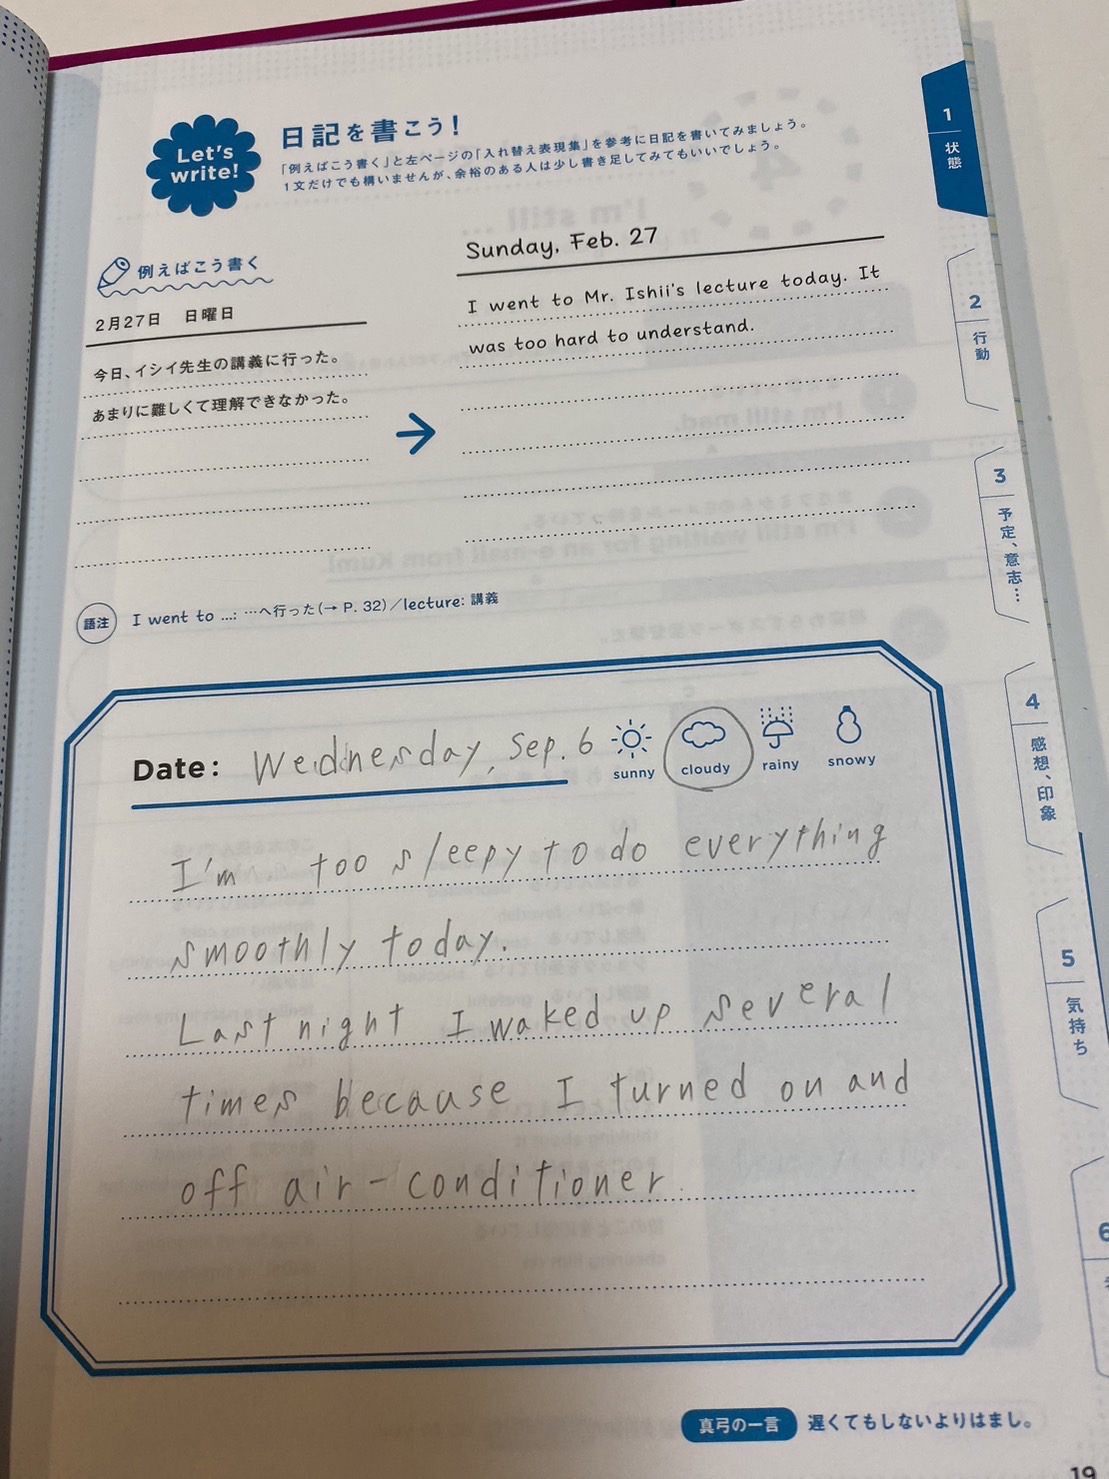 Let's
write!
日記を書こう！
「例えばこう書く」と左ページの「入れ替え表現集」を参考に日記を書いてみましょう。
1文だけでも構いませんが、余裕のある人は少し書き足してみてもいいでしょう。
例えばこう書く
2月27日　日曜日
今日、イシイ先生の講義に行った。
あまりに難しくて理解できなかった。
Sunday, Feb. 27
I went to Mr. Ishii's lecture today. It
was too hard to understand.
語注 I went to ...: …へ行った(→ P. 32)／lecture: 講義
Date: Wednesday, Sep. 6
sunny cloudy rainy snowy
I'm too sleepy to do everything
smoothly today.
Last night I waked up several
times because I turned on and
off air-conditioner
真弓の一言 遅くてもしないよりはまし。
19
1 状態
2 行動
3 予定、意志…
4 感想、印象
5 気持ち
6